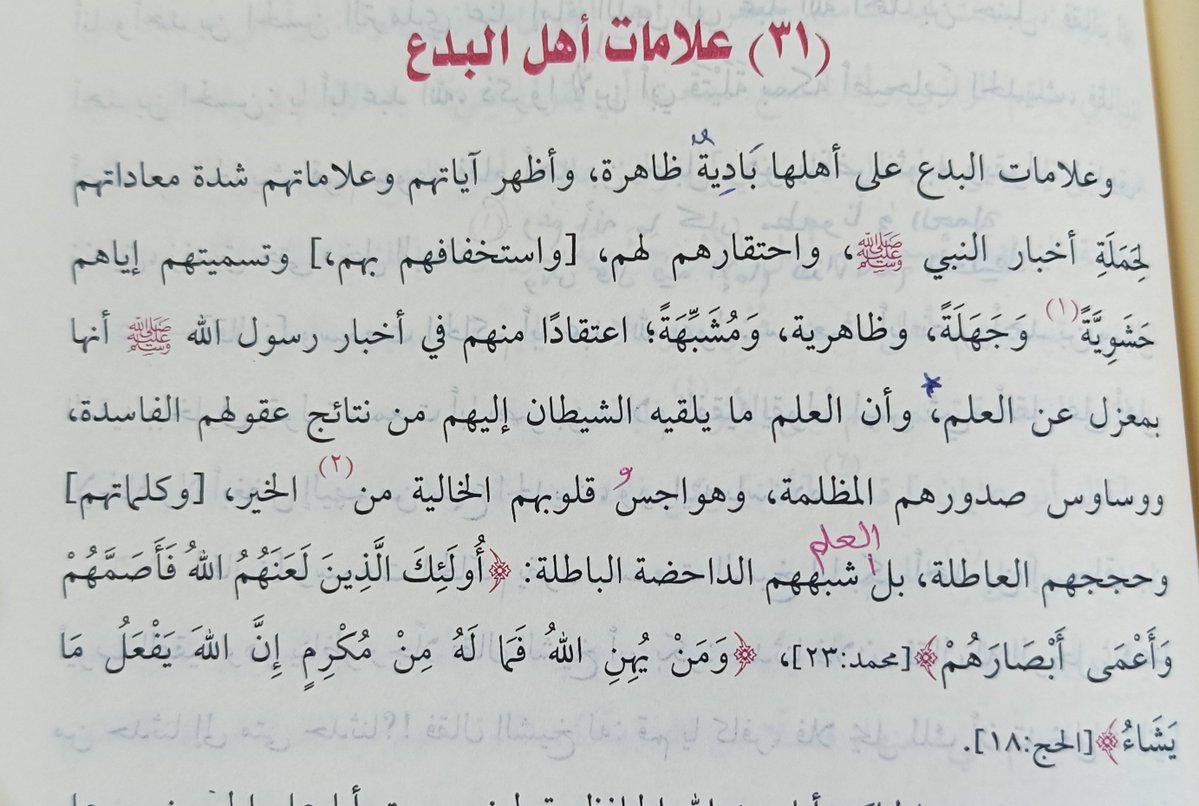 (٣١) علامات أهل البدع
وعلامات البدع على أهلها بَادِيةٌ ظاهرة، وأظهر آياتهم وعلاماتهم شدة معاداتهم
لِحَمَلَةِ أخبار النبي ﷺ، واحتقارهم لهم، [واستخفافهم بهم،] وتسميتهم إياهم
حَشَوِيَّةً(١) وَجَهَلَةً، وظاهرية، وَمُشَبِّهَةً؛ اعتقادًا منهم في أخبار رسول الله ﷺ أنها
بمعزل عن العلم، وأن العلم ما يلقيه الشيطان إليهم من نتائج عقولهم الفاسدة،
ووساوس صدورهم المظلمة، وهواجسُ قلوبهم الخالية من(٢) الخير، [وكلماتهم]
العلم
وحججهم العاطلة، بل شبههم الداحضة الباطلة: ﴿أُولَئِكَ الَّذِينَ لَعَنَهُمُ اللهُ فَأَصَمَّهُمْ
وَأَعْمَى أَبْصَارَهُمْ﴾[محمد:٢٣]، ﴿وَمَنْ يُهِنِ اللهُ فَمَا لَهُ مِنْ مُكْرِمٍ إِنَّ اللهَ يَفْعَلُ مَا
يَشَاءُ﴾[الحج:١٨].